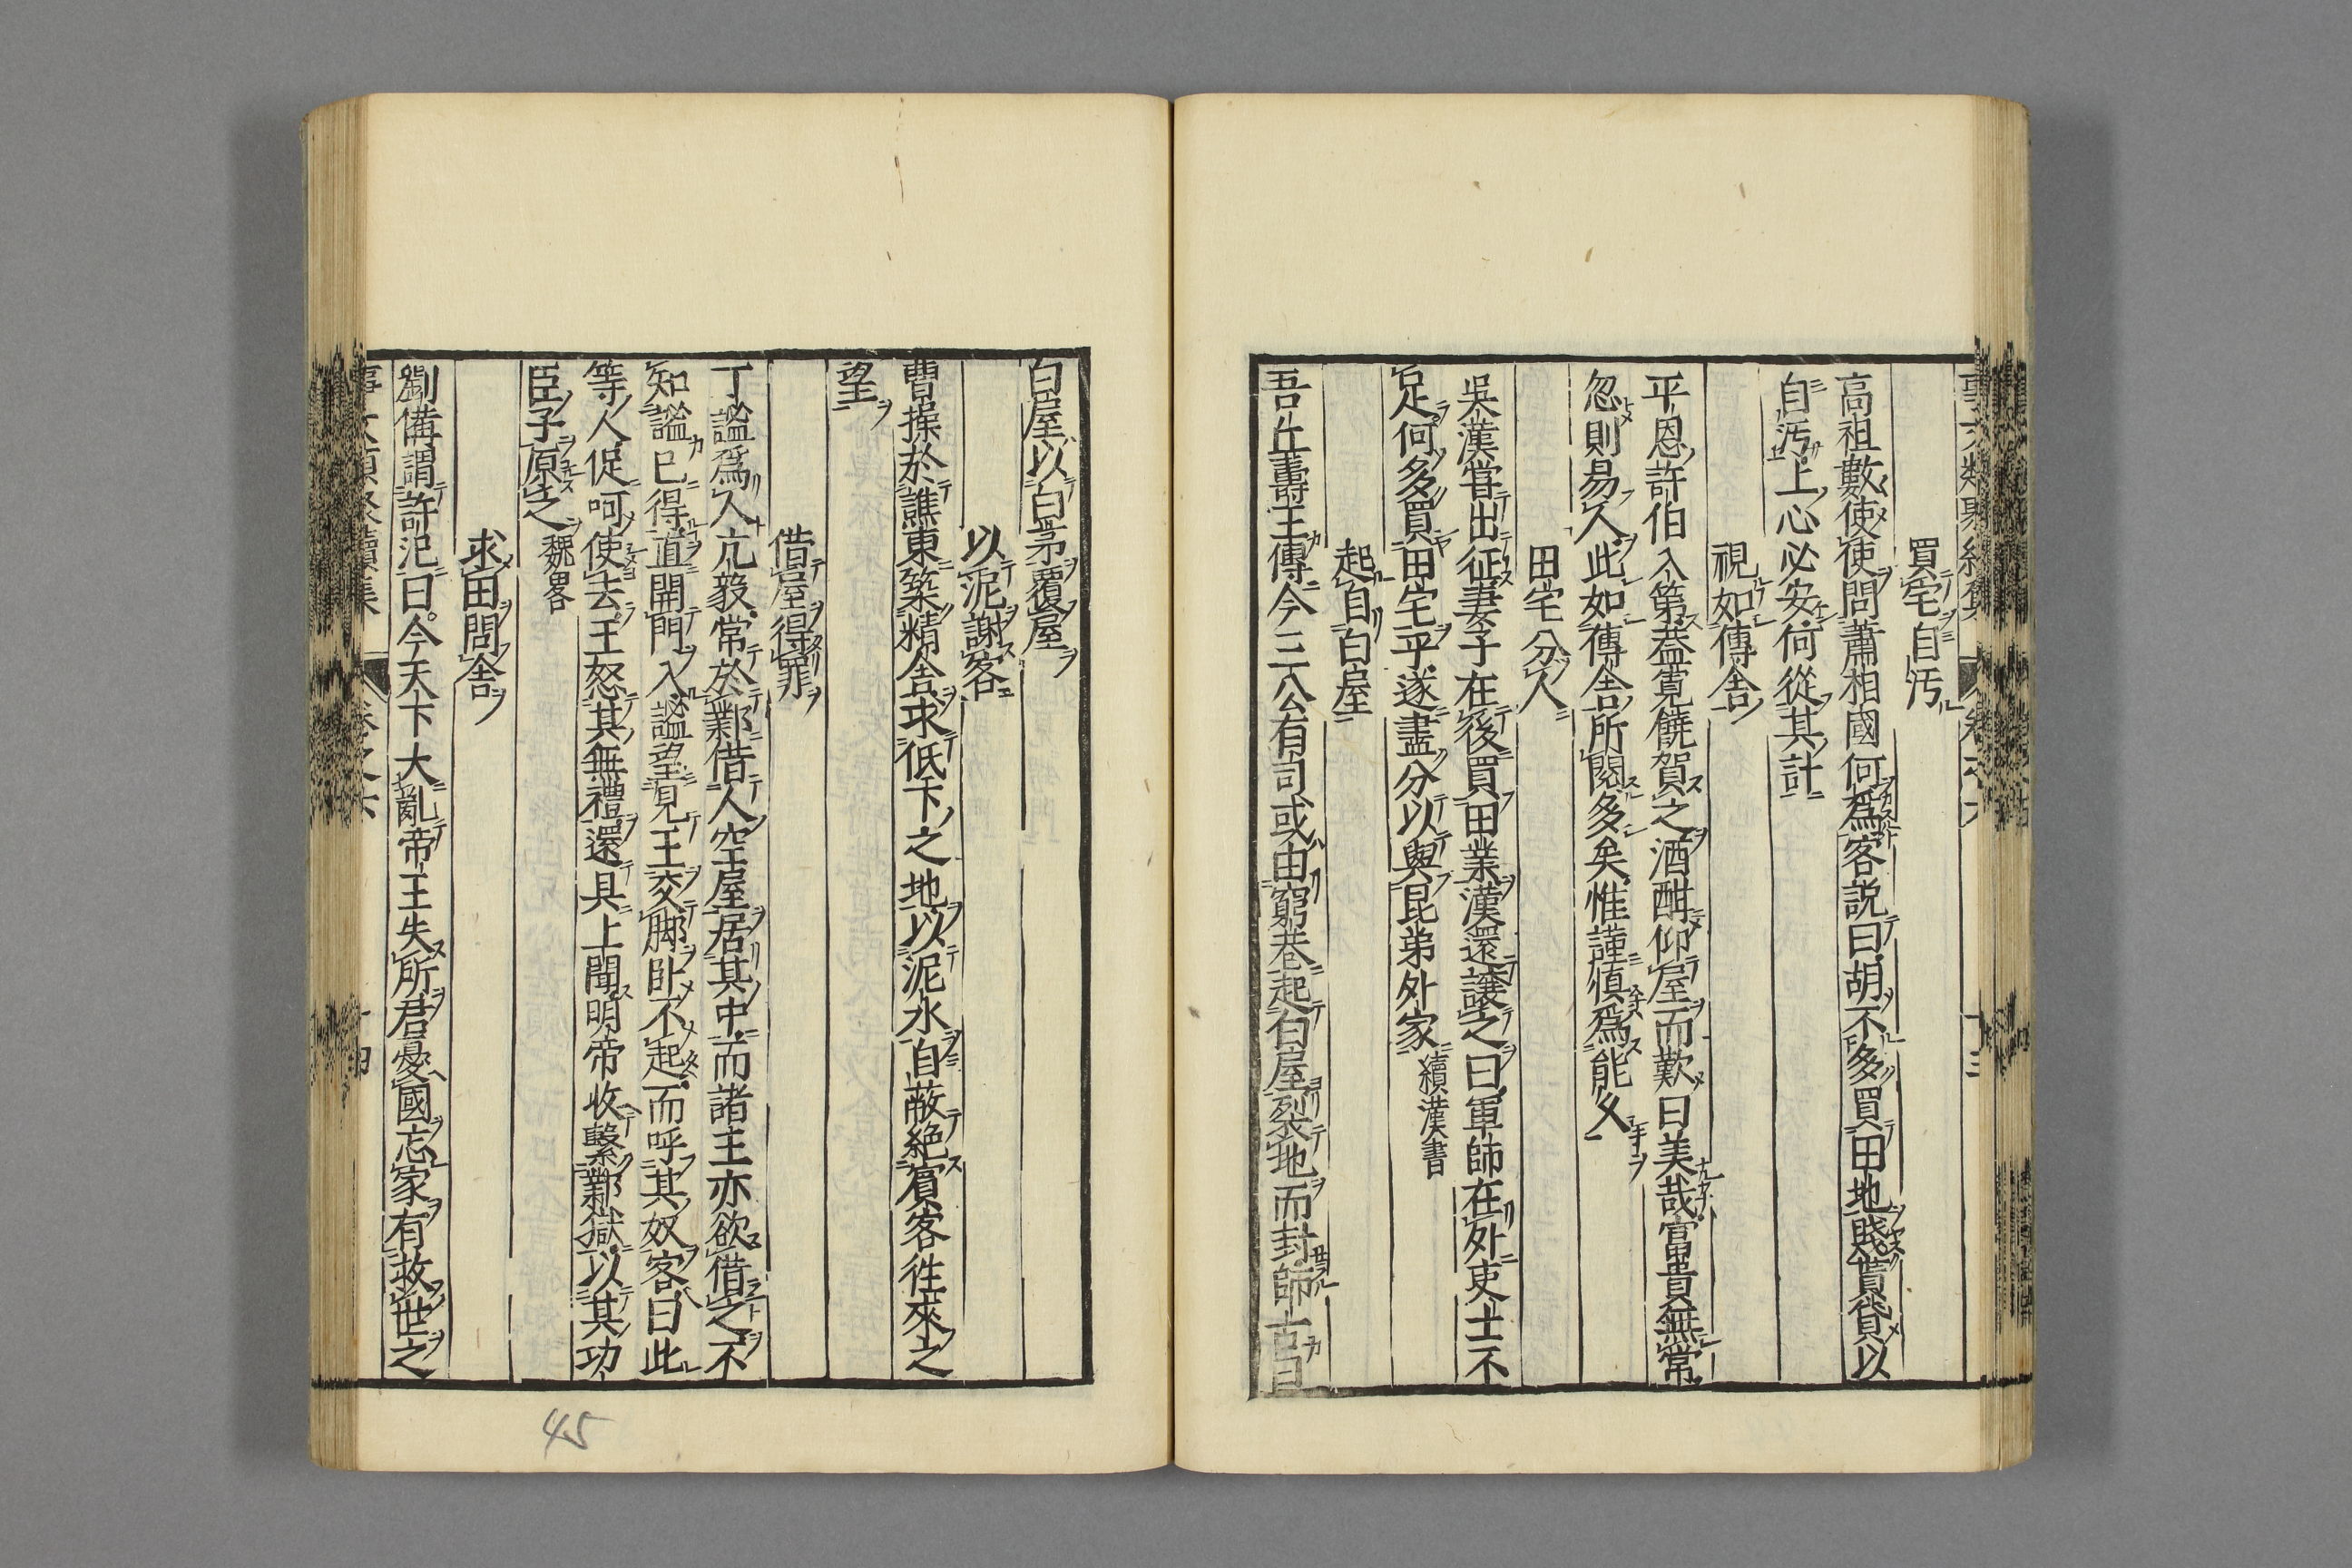 買宅自汚
高祖數使使問蕭相國何爲客説曰胡不多買田地賤貰貸以
自汚上心必安何從其計
視如傳舎
平恩許伯入第蓋寛饒賀之酒酣仰屋而歎曰美哉富貴無常
忽則易人此如傳舎所閲多矣惟謹慎爲能久
田宅分人
吳漢甞出征妻子在後買田業漢還讓之曰軍師在外吏士不
足何多買田宅乎遂盡分以與昆弟外家 續漢書
起自白屋
吾丘壽王傳今三公有司或由窮巷起白屋裂地而封師古曰
白屋以白茅覆屋
以泥謝客
曹操於譙東築精舎求低下之地以泥水自蔽絶賓客徃來之
望
借屋得罪
丁謐爲人亢毅常於鄴借人空屋居其中而諸王亦欲借之不
知謐已得直開門入謐望見王交脚卧不起而呼其奴客曰此
等人促呵使去王怒其無禮還具上聞明帝收繫鄴獄以其功
臣子原之 魏畧
求田問舎
劉備謂許汜曰今天下大亂帝王失所君憂國忘家有救世之
卷之六
45